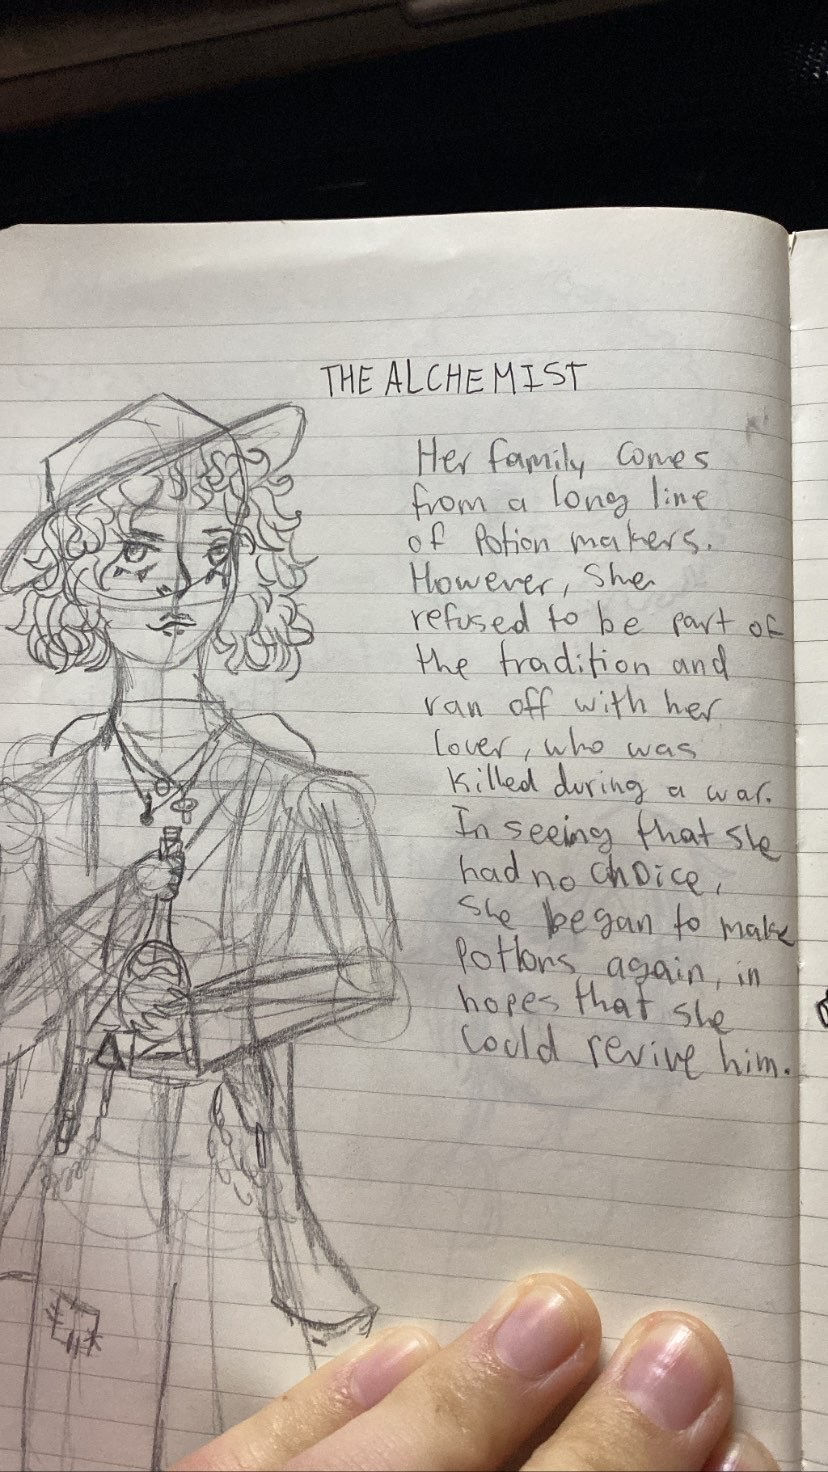 THE ALCHEMIST
Her family comes
from a long line
of Potion makers.
However, She
refused to be part of
the tradition and
ran off with her
lover, who was
killed during a war.
In seeing that she
had no choice,
She began to make
Potions again, in
hopes that she
could revive him.